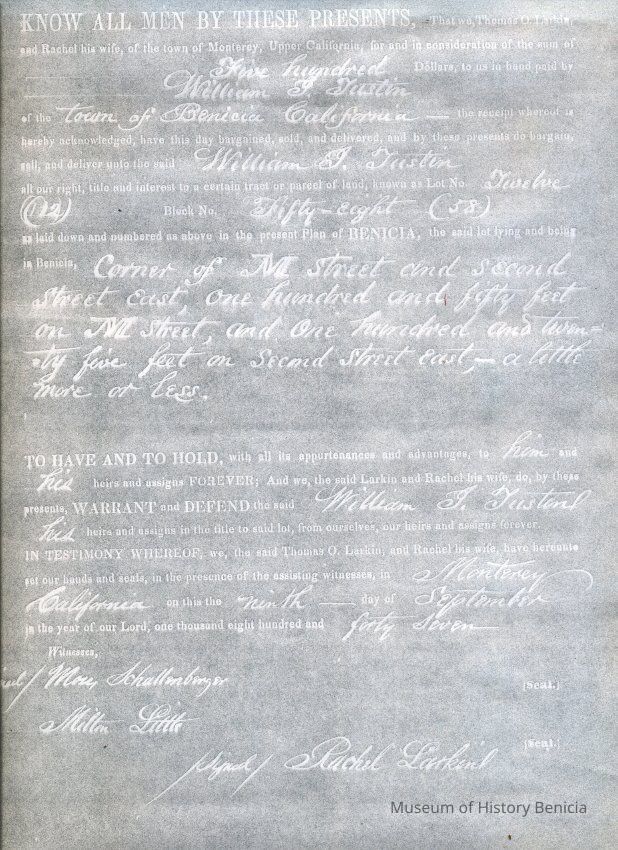 KNOW ALL MEN BY THESE PRESENTS, That we, Thomas O. Larkin,
and Rachel his wife, of the town of Monterey, Upper California, for and in consideration of the sum of
Five hundred Dollars, to us in hand paid by
William J. Tustin
of the town of Benicia California — the receipt whereof is
hereby acknowledged, have this day bargained, sold, and delivered, and by these presents do bargain,
sell, and deliver unto the said William J. Tustin
all our right, title and interest to a certain tract or parcel of land, known as Lot No. Twelve
(12) Block No. Fifty-eight (58)
as laid down and numbered as above in the present Plan of BENICIA, the said lot lying and being
in Benicia, Corner of M street and second
street east, one hundred and fifty feet
on M street, and one hundred and twen=
ty five feet on second street east,— a little
more or less.
TO HAVE AND TO HOLD, with all its appurtenances and advantages, to him and
his heirs and assigns FOREVER; And we, the said Larkin and Rachel his wife, do, by these
presents, WARRANT and DEFEND the said William J. Tustin
his heirs and assigns in the title to said lot, from ourselves, our heirs and assigns forever.
IN TESTIMONY WHEREOF, we, the said Thomas O. Larkin, and Rachel his wife, have hereunto
set our hands and seals, in the presence of the assisting witnesses, in Monterey
California on this the ninth — day of September
in the year of our Lord, one thousand eight hundred and forty seven
Witnesses,
Schallenberger
[Seal.]
Milton Little
[Seal.]
(signed) Rachel Larkin
Museum of History Benicia